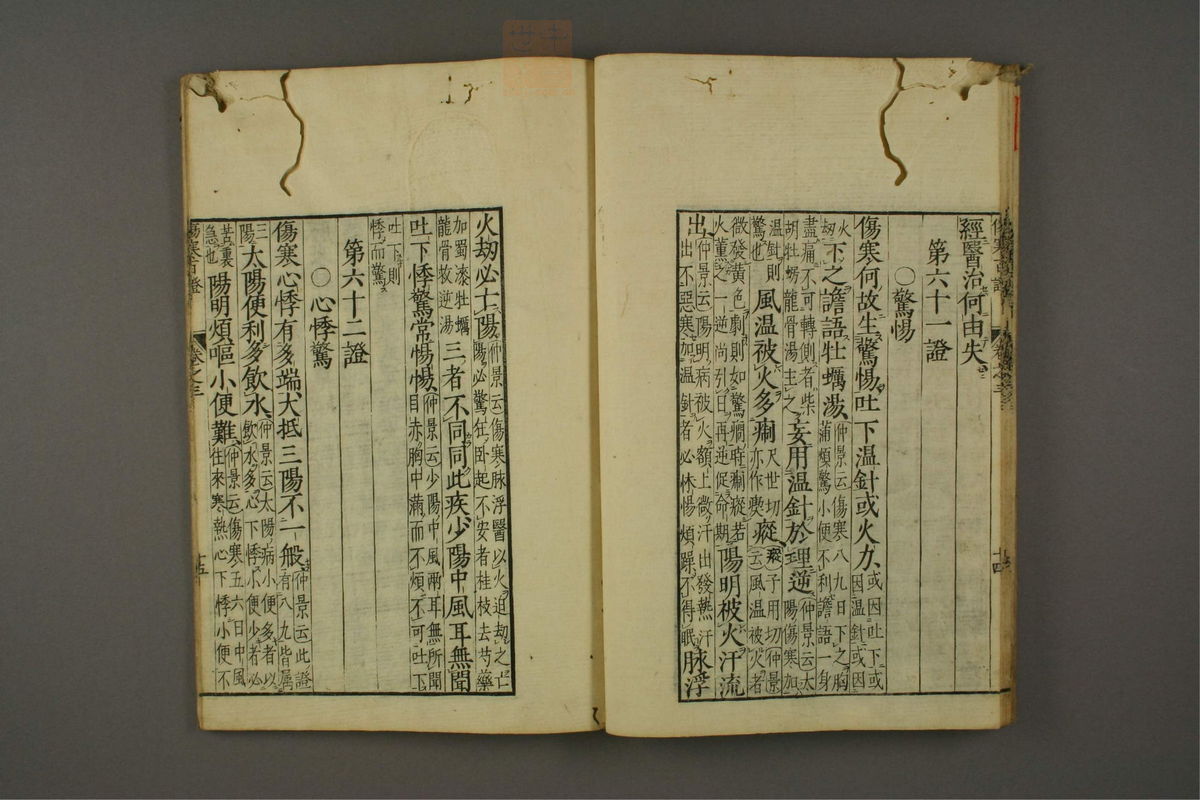 經醫治何由失
第六十一證
○驚惕
傷寒何故生驚惕吐下温針或火力或因吐下或因温針或因
火刼下之譫語牡蠣湯仲景云傷寒八九日下之胸滿煩驚小便不利譫語一身
盡痛不可轉側者柴胡牡蠣龍骨湯主之妄用温針於理逆仲景云太陽傷寒加
温針則驚也風温被火多瘛尺世切亦作瘈瘲子用切仲景云風温被火者
微發黃色劇則如驚癎時瘛瘲若火熏之一逆尚引日再逆促命期陽明被火汗流
出仲景云陽明病被火額上微汗出發熱汗出不惡寒加温針者必怵惕煩躁不得眠脉浮
十四
火劫必亡陽仲景云傷寒脉浮醫以火迫劫之亡陽必驚狂卧起不安者桂枝去芍藥
加蜀漆牡蠣龍骨救逆湯三者不同同此疾少陽中風耳無聞
吐下悸驚常惕惕仲景云少陽中風兩耳無所聞目赤胸中滿而不煩不可吐下
吐下則悸而驚
第六十二證
○心悸驚
傷寒心悸有多端大抵三陽不一般仲景云此證有八九皆属
三陽太陽便利多飲水仲景云太陽病小便多者以飲水多心下悸小便少者必
苦裏急也陽明煩嘔小便難仲景云傷寒五六日中風往來寒熱心下悸小便不
傷寒百證 卷之三 十五